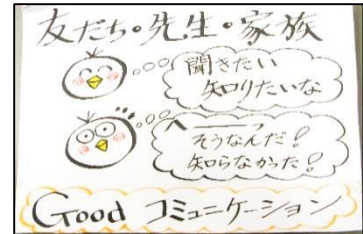 友だち・先生・家族
聞きたい
知りたいな
へーーっ
そうなんだ!
知らなかった!
Good コミュニケーション